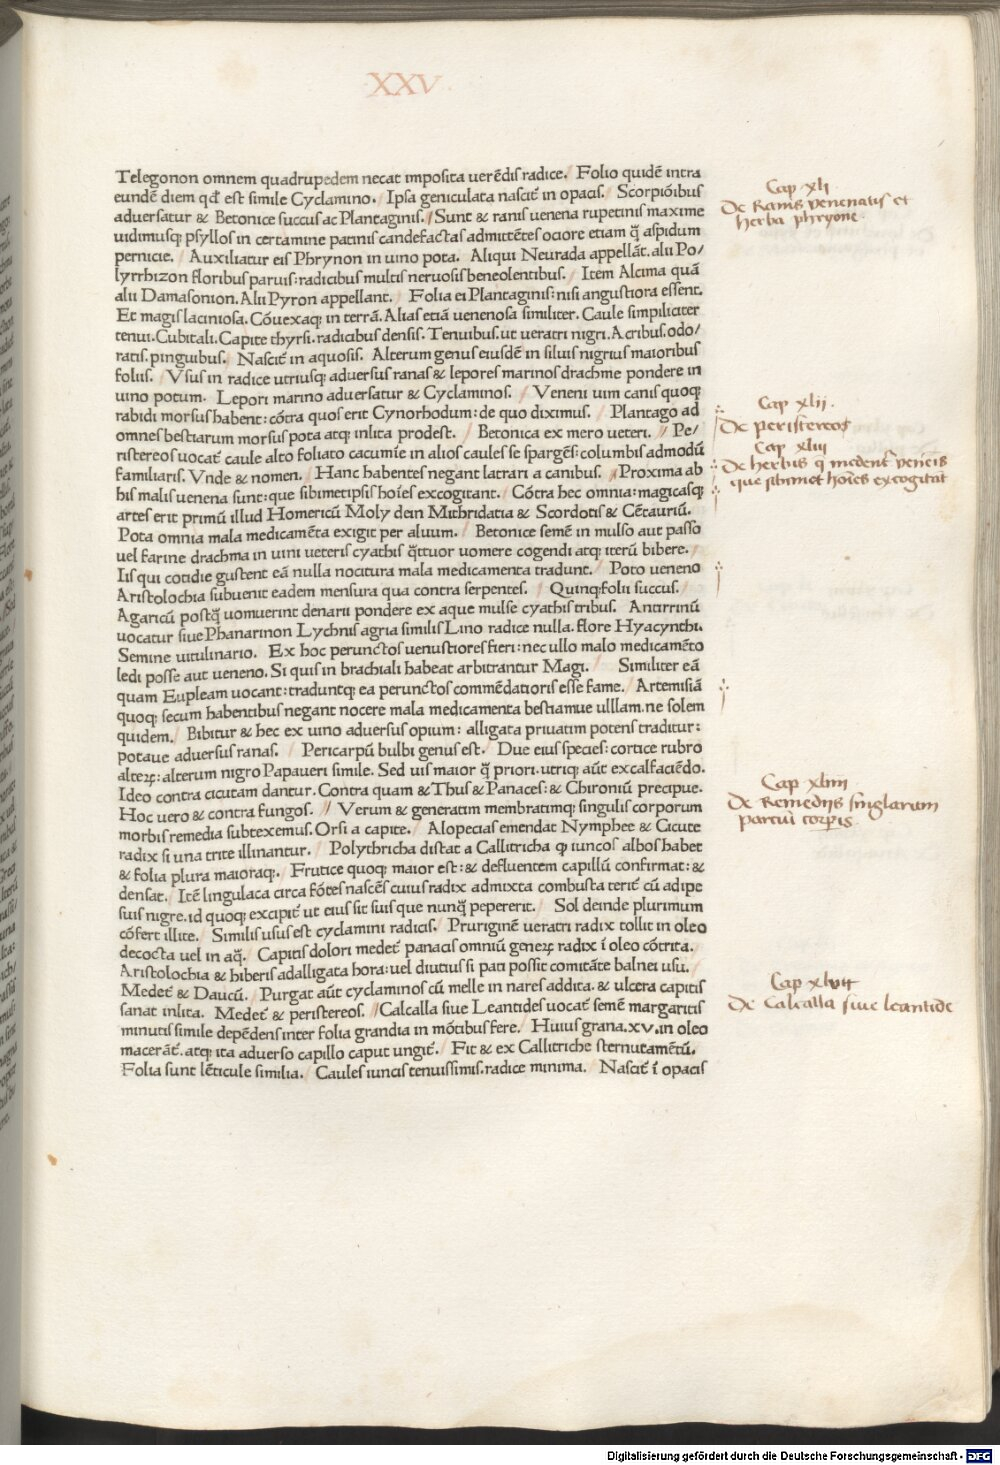 XXV
Telegonon omnem quadrupedem necat imposita uerēdis radice. Folio quidē intra
eundē diem qđ est simile Cyclamino. Ipsa geniculata nascit̃ in opacis. Scorpiōibus
aduersatur & Betonice succus ac Plantaginis. Sunt & ranis uenena rupetinis maxime
uidimusq; psyllos in certamine patinis candefactas admittētes ociore etiam q̃ aspidum
pernicie. Auxiliatur eis Phrynon in uino pota. Aliqui Neurada appellāt. alii Po/
lyrrhizon floribus paruis: radicibus multis neruosis beneolentibus. Item Alcima quā
alii Damasonion. Alii Pyron appellant. Folia ei Plantaginis: nisi angustiora essent.
Et magis laciniosa. Cōuexaq; in terrā. Alias etiā uenenosa similiter. Caule simpiliciter
tenui. Cubitali. Capite thyrsi. radicibus densis. Tenuibus. ut ueratri nigri. Acribus. odo/
ratis. pinguibus. Nascit̃ in aquosis. Alterum genus eiusdē in siluis nigrius maioribus
foliis. Vsus in radice utriusq; aduersus ranas & lepores marinos drachme pondere in
uino potum. Lepori marino aduersatur & Cyclaminos. Veneni uim canis quoq;
rabidi morsus habent: cōtra quos erit Cynorhodum: de quo diximus. Plantago ad
omnes bestiarum morsus pota atq; inlita prodest. Betonica ex mero ueteri. Pe/
ristereos uocat̃ caule alto foliato cacumīe in alios caules se spargēs: columbis admodū
familiaris. Vnde & nomen. Hanc habentes negant latrari a canibus. Proxima ab
his malis uenena sunt: que sibimetipsis hoīes excogitant. Cōtra hec omnia: magicasq;
artes erit primū illud Homericū Moly dein Mithridatia & Scordotis & Cētauriū.
Pota omnia mala medicamēta exigit per aluum. Betonice semē in mulso aut passo
uel farine drachma in uini ueteris cyathis q̃ttuor uomere cogendi atq; iterū bibere.
Iis qui cotidie gustent eā nulla nocitura mala medicamenta tradunt. Poto ueneno
Aristolochia subuenit eadem mensura qua contra serpentes. Quinq; folii succus.
Agaricū postq̃ uomuerint denarii pondere ex aque mulse cyathis tribus. Antirrinū
uocatur siue Phanarinon Lychnis agria similis Lino radice nulla. flore Hyacynthi.
Semine uitulinario. Ex hoc perunctos uenustiores fieri: nec ullo malo medicamēto
ledi posse aut ueneno. Si quis in brachiali habeat arbitrantur Magi. Similiter eā
quam Eupleam uocant: traduntq; ea perunctos commēdatioris esse fame. Artemisiā
quoq; secum habentibus negant nocere mala medicamenta bestiamue ulllam. ne solem
quidem. Bibitur & hec ex uino aduersus opium: alligata priuatim potens traditur:
potaue aduersus ranas. Pericarpū bulbi genus est. Due eius species: cortice rubro
alteꝝ: alterum nigro Papaueri simile. Sed uis maior q̃ priori. utriq; aūt excalfaciēdo.
Ideo contra cicutam dantur. Contra quam & Thus & Panaces: & Chironiū precipue.
Hoc uero & contra fungos. Verum & generatim membratimq; singulis corporum
morbis remedia subtexemus. Orsi a capite. Alopecias emendat Nymphee & Cicute
radix si una trite illinantur. Polythricha distat a Callitricha ꝙ iuncos albos habet
& folia plura maioraq;. Frutice quoq; maior est: & defluentem capillū confirmat: &
densat. Itē lingulaca circa fōtes nascēs cuius radix admixta combusta terit̃ cū adipe
suis nigre. id quoq; excipit̃ ut eius sit suis que nunq̃ pepererit. Sol deinde plurimum
cōfert illite. Similis usus est cyclamini radicis. Pruriginē ueratri radix tollit in oleo
decocta uel in aq̃. Capitis dolori medet̃ panacis omniū geneꝝ radix ī oleo cōtrita.
Aristolochia & hiberis adalligata hora: uel diutius si pati possit comitāte balnei usu.
Medet̃ & Daucū. Purgat aūt cyclaminos cū melle in nares addita. & ulcera capitis
sanat inlita. Medet̃ & peristereos. Calcalla siue Leantides uocat̃ semē margaritis
minutis simile depēdens inter folia grandia in mōtibus fere. Huius grana. xv. in oleo
macerāt̃. atq; ita aduerso capillo caput ungit̃. Fit & ex Callitriche sternutamētū.
Folia sunt lēticule similia. Caules iuncis tenuissimis. radice minima. Nascit̃ ī opacis
Cap xli
De Ranis venenatis et
herba phryone
Cap xlii.
De peristereos
Cap xliii
De herbis q̄ medent̃ veneis
que sibimet hoīes excogitāt
Cap xliiii
De Remedijs singlarum
partiū corp̄is
Cap xlvii
De Calcalla siue leantide
Digitalisierung gefördert durch die Deutsche Forschungsgemeinschaft - DFG